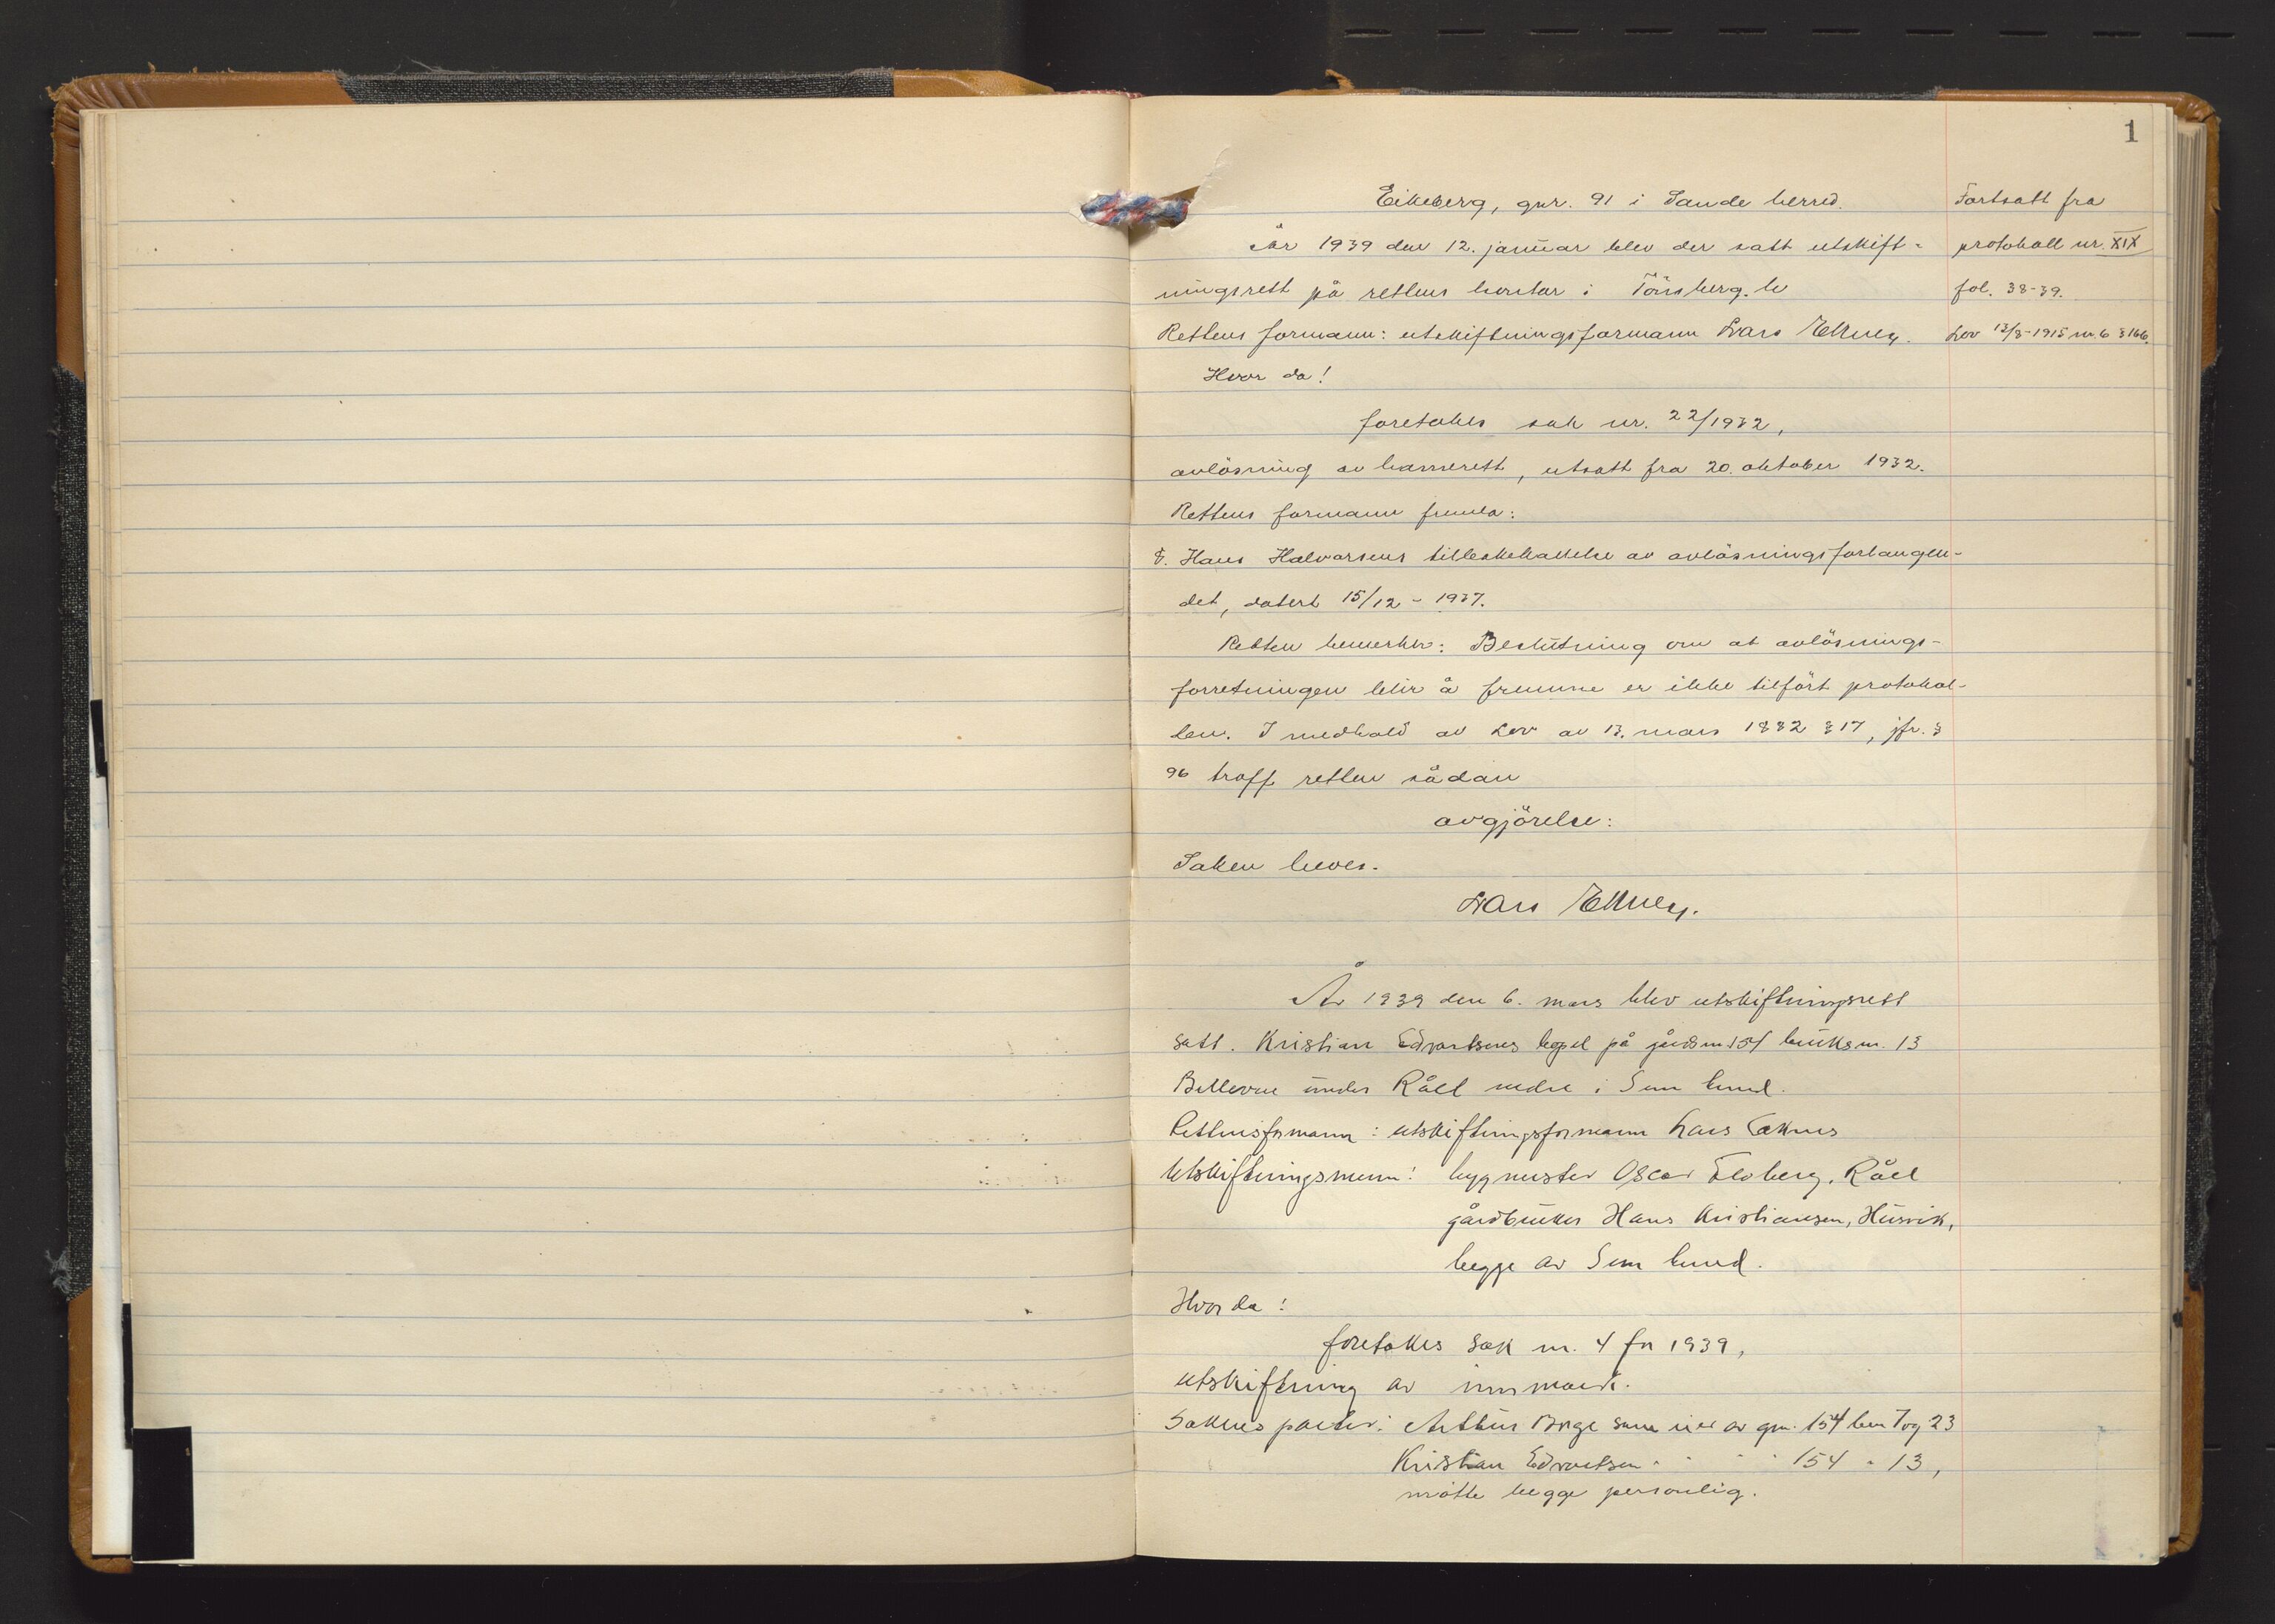 1
Eikeberg, gnr. 91 i Sande herred.
Fortsatt fra
protokoll nr. XIX
fol. 38-39.
Lov 13/8-1915 nr. 6 § 166.
År 1939 den 12. januar blev der satt utskift-
ningsrett på rettens kontor i Tönsberg.
Rettens formann: utskiftningsformann Lars
Hvor da!
foretokes sak nr. 22/1932,
avlösning av hamnerett, utsatt fra 20. oktober 1932.
Rettens formann fremla:
8. Hans Halvorsens tilbakekallelse av avlösningsforlangen-
det, datert 15/12-1937.
Retten bemerker: Beslutning om at avlösnings-
forretningen blir å fremme er ikke tilfört protokol-
len. I medhold av Lov av 13. mars 1882 § 17, jfr. §
96 traff retten sådan
avgjörelse:
Saken heves.
Lars
År 1939 den 6. mars blev utskiftningsrett
satt. Kristian Edvartsens bopel på gårdsnr. 154 bruksnr. 13
Bellevue under Råel nedre i Sem herred.
Rettens formann: utskiftningsformann Lars
Utskiftningsmenn: bygmester Oscar Råel
gårdbruker Hans Kristiansen, Husvik,
begge av Sem herred.
Hvor da!
foretokes sak nr. 4 for 1939,
utskiftning av innmark.
Sakens parter: Arthur Borge som eier av gnr. 154 bnr 7 og 23
Kristian Edvartsen " " " " 154 " 13,
møtte begge personlig.